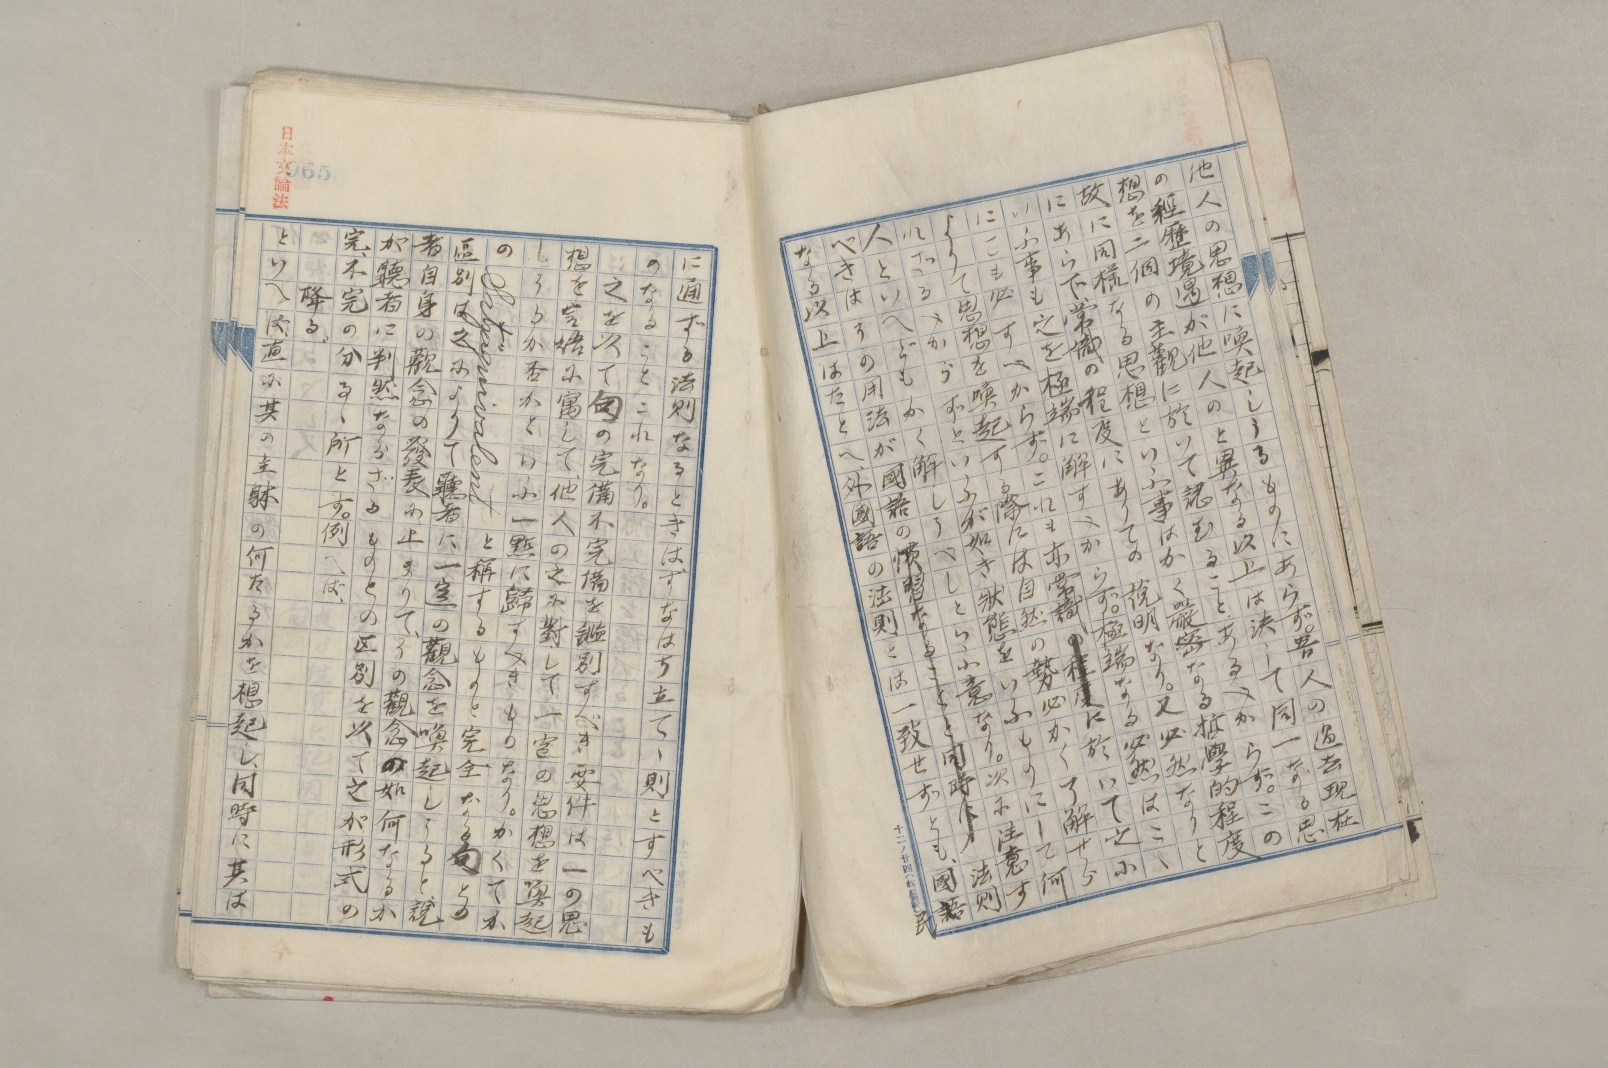 他人の思想に喚起しうるものにあらず。吾人の過去現在
の経歴境遇が他人のと異なる以上は決して同一なる思
想を二個の主觀に於いて認むることあるべからず。この
故に同様なる思想といふ事はかく嚴密なる哲學的程度
にあらで常識の程度にありての説明なり。又必然なりと
いふ事も之を極端に解すべからず。極端なる必然はこゝ
にこも必すべからず。これも亦常識の程度に於いて之に
よりて思想を喚起する際には自然の勢必かく了解せら
れざるべからずといふが如き狀態をいふものにして何
人といへどもかく解しうべしとらふ意なり。次に注意す
べきはその用法が國語の慣習なることと同時に法則
なる以上はたとへ、外國語の法則とは一致せずとも、國語
民
に通ずる法則なるときはすなはち立てゝ則とすべきも
のなることこれなり。
之を以て句の完備不完備を鑑別すべき要件は一の思
想を言語に寓して他人の之に對して一定の思想を喚起
しうるか否かといふ一點に歸すべきものなり。かくてか
の Satzäquivalent と稱するものと完全なる句との
區別は之によりて聽者に一定の觀念を喚起しうると、説
者自身の觀念の發表に止まりて、その觀念の如何なるか
が聽者に判然ならざるものとの区別を以て之が形式の
完、不完の分るゝ所とす。例へば、
降る。
といへば、直に其の主躰の何たるかを想起し、同時に其は
日本文論法
965